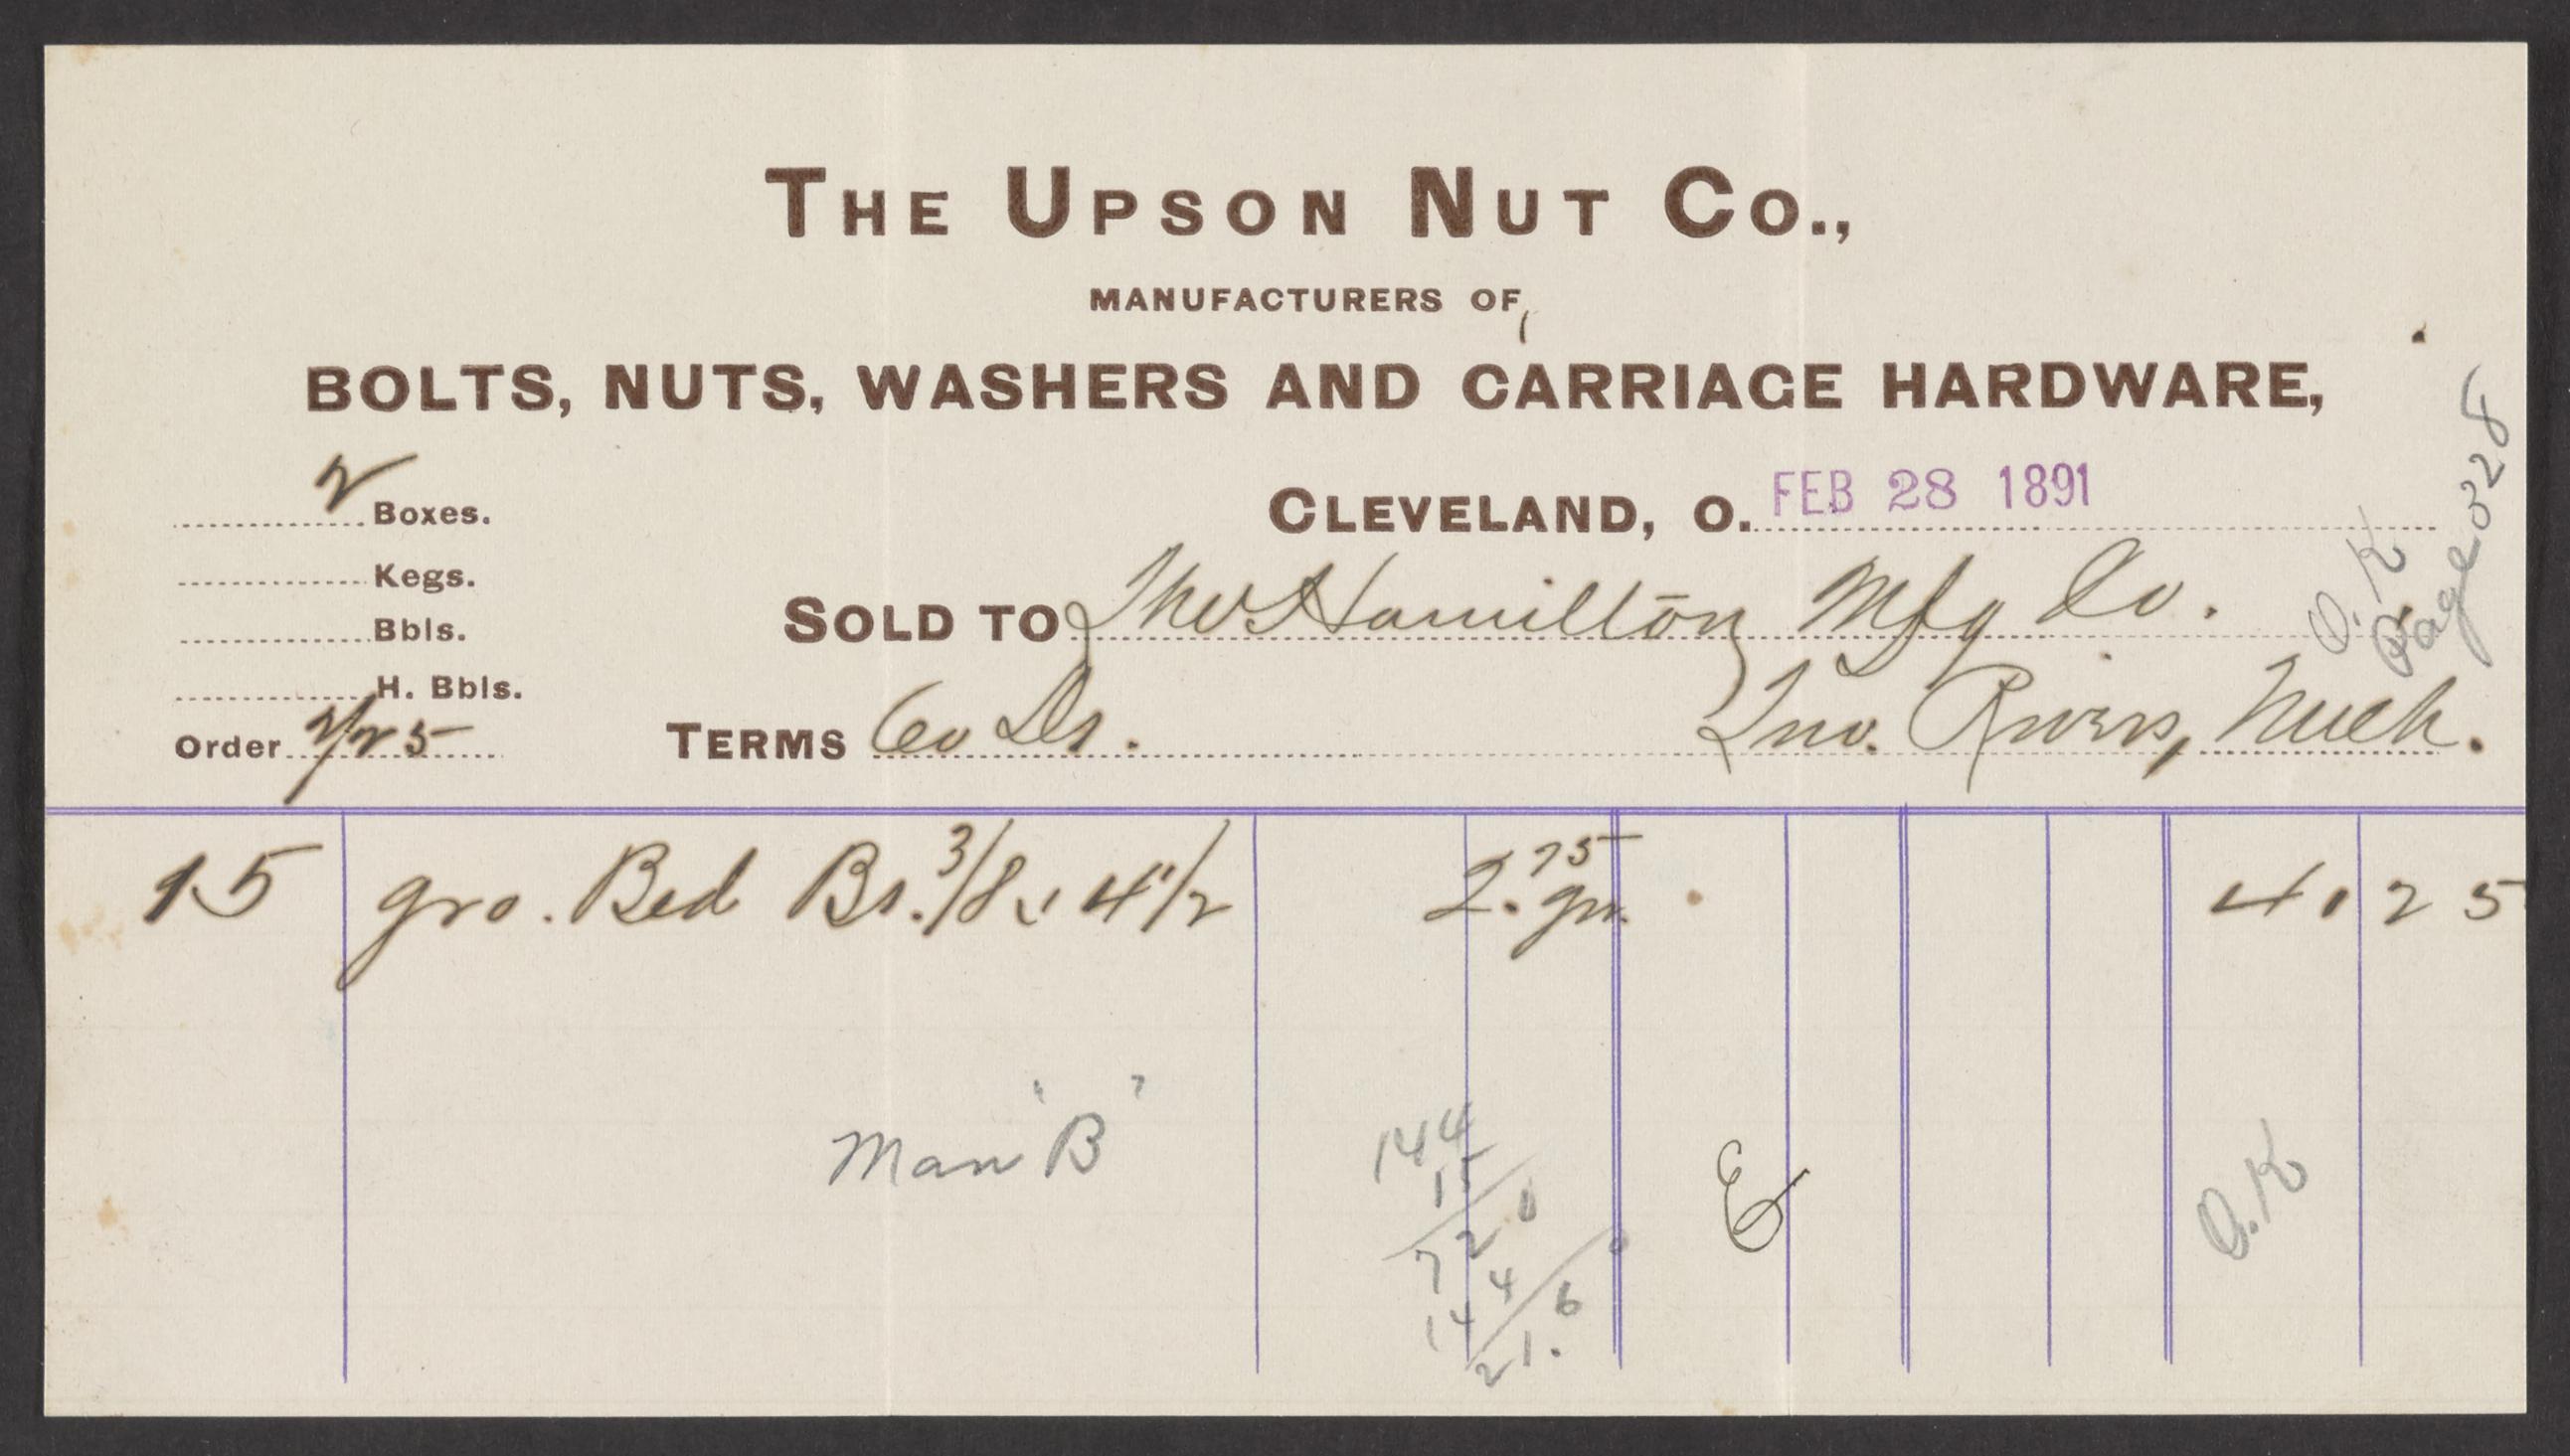 THE UPSON NUT CO.,
MANUFACTURERS OF
BOLTS, NUTS, WASHERS AND CARRIAGE HARDWARE,
2 Boxes.
CLEVELAND, O. FEB 28 1891
Kegs.
SOLD TO The Hamilton Mfg Co.
Bbls.
H. Bbls.
Two Rivers,
Order 2/25
TERMS 60 Ds.
O.K
Page 328
15 gro. Bed Bs. 3/8 x 4 1/2 2.75 gro. 4.25
Man "B"
144
15
720
144
2160
O.K